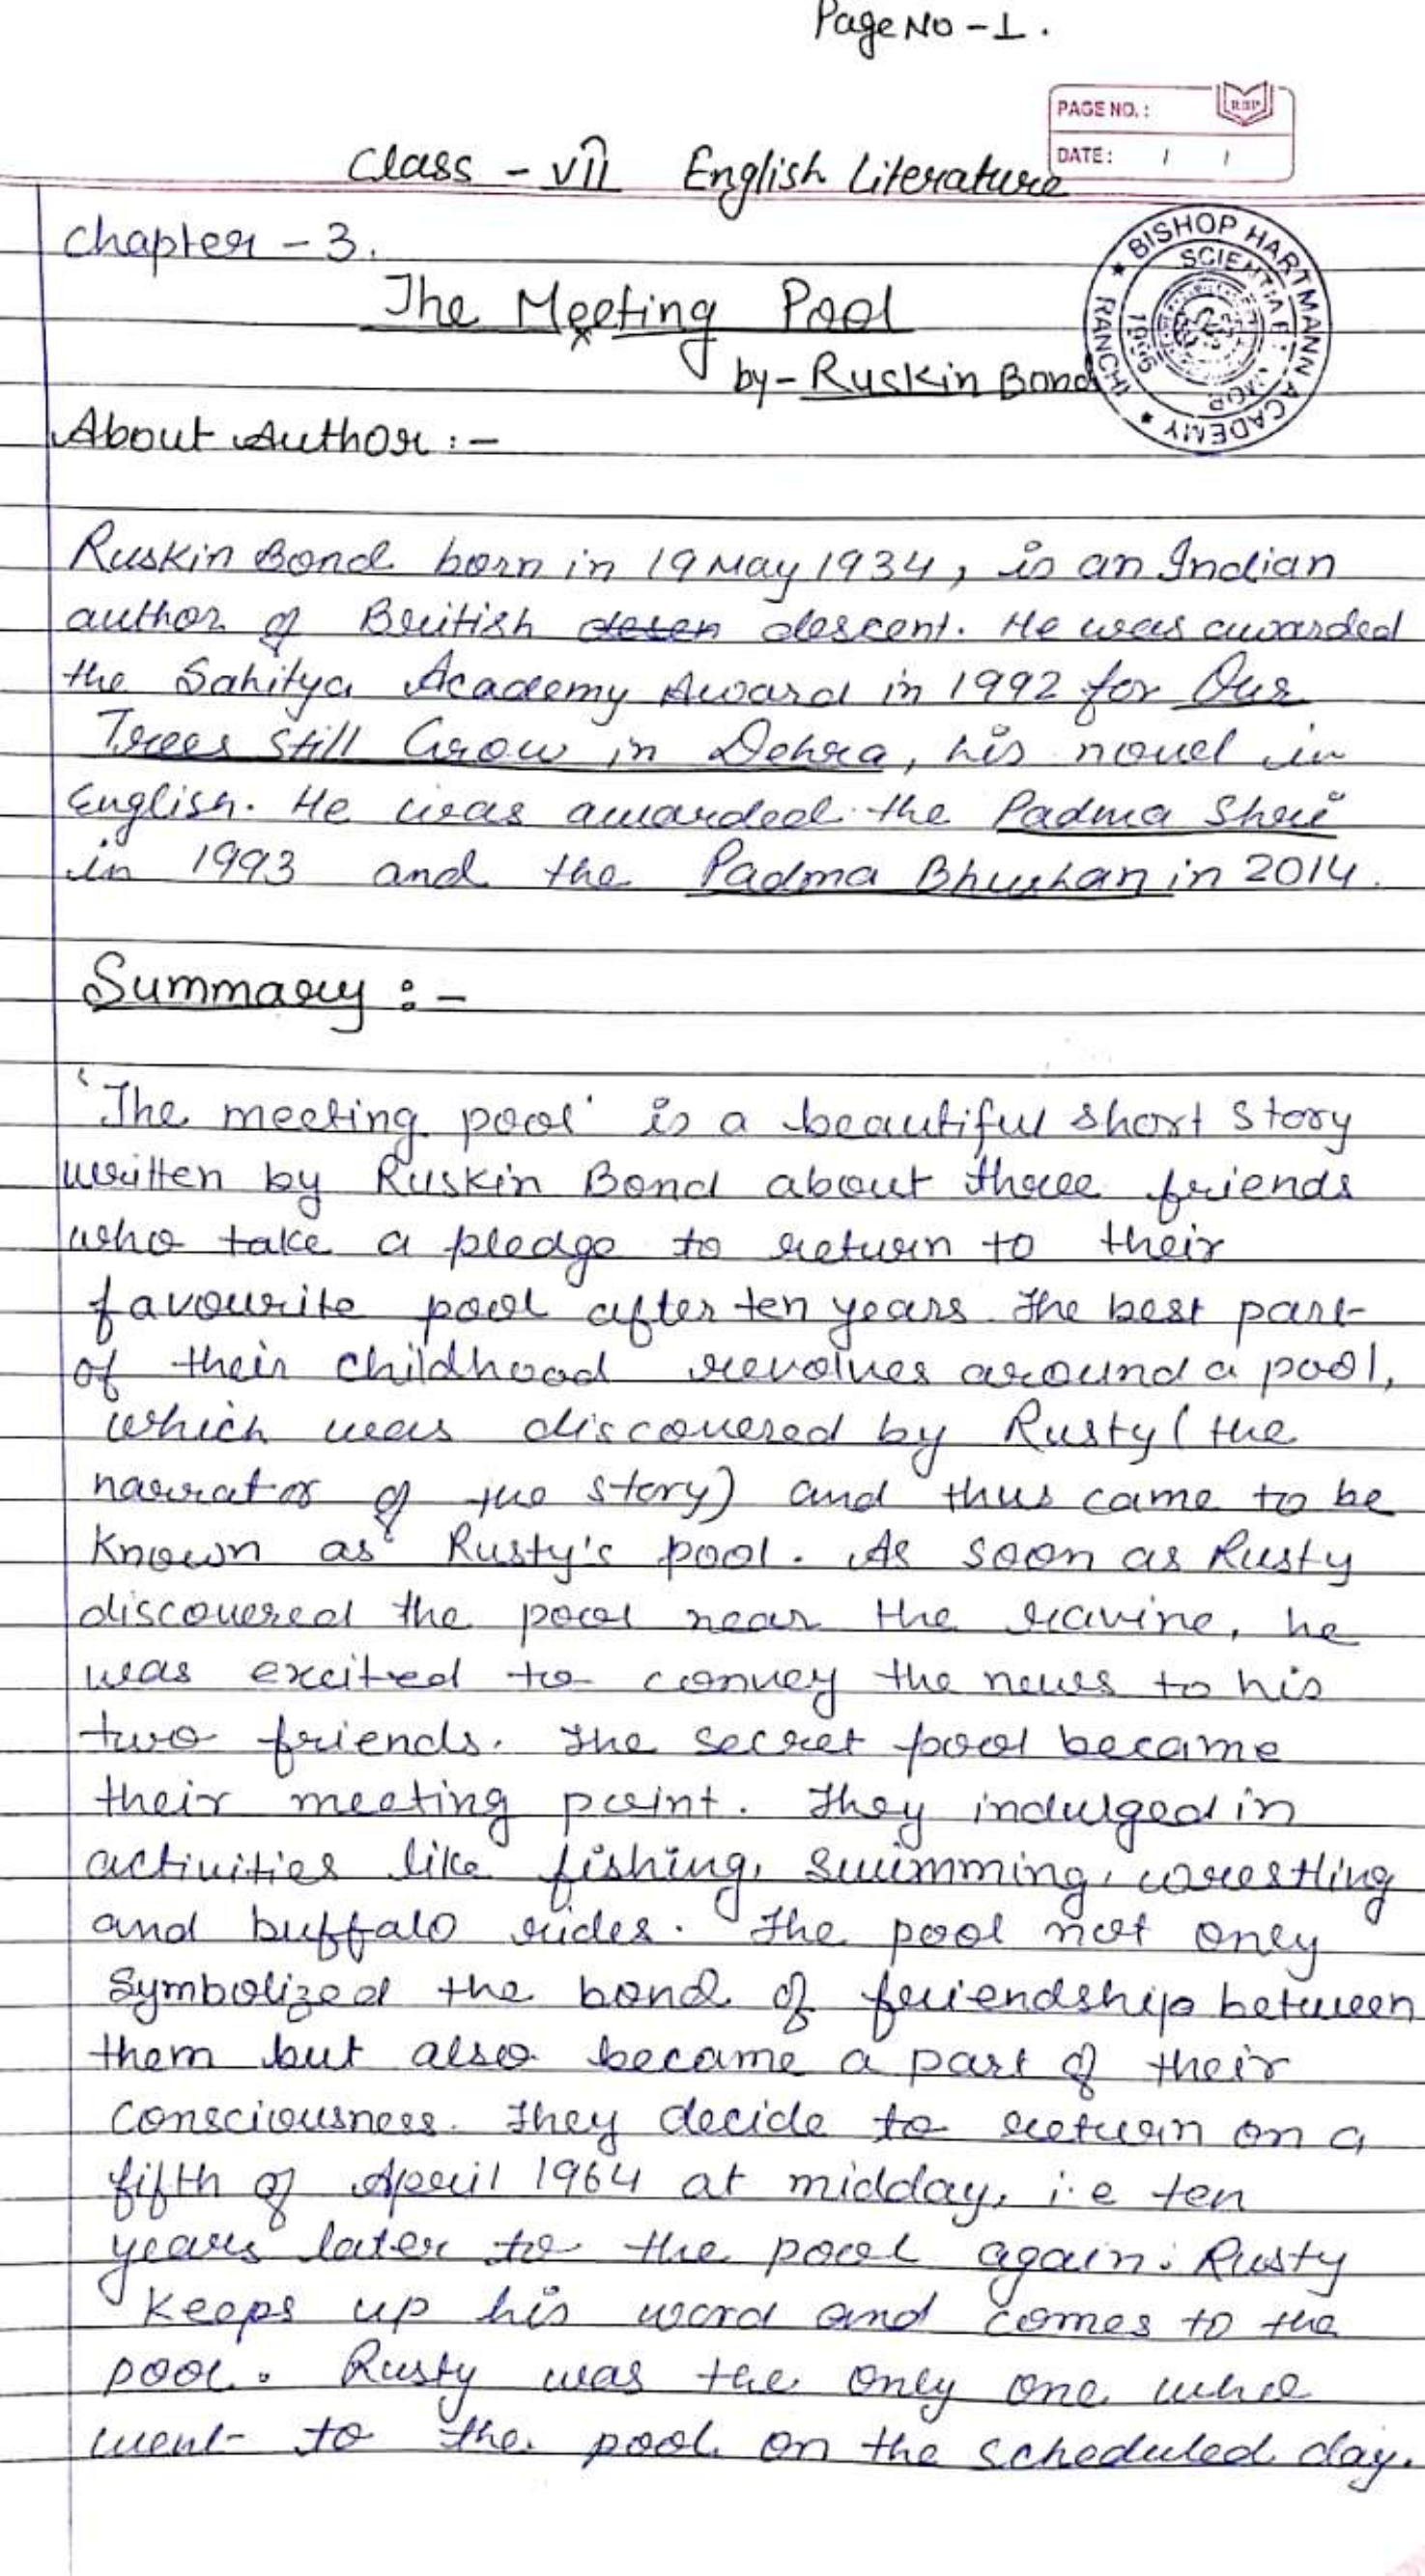 Page No - 1.
PAGE NO.:
RBP
DATE: / /
Class - VII English Literature
Chapter - 3.
The Meeting Pool
by - Ruskin Bond
BISHOP HARTMANN ACADEMY
RANCHI
1996
About Author : -
Ruskin Bond born in 19 May 1934, is an Indian
author of British descent. He was awarded
the Sahitya Academy Award in 1992 for Our
Trees Still Grow in Dehra, his novel in
English. He was awarded the Padma Shri
in 1993 and the Padma Bhushan in 2014.
Summary : -
'The meeting pool' is a beautiful short story
written by Ruskin Bond about three friends
who take a pledge to return to their
favourite pool after ten years. The best part
of their childhood revolves around a pool,
which was discovered by Rusty (the
narrator of the story) and thus came to be
known as Rusty's pool. As soon as Rusty
discovered the pool near the ravine, he
was excited to convey the news to his
two friends. The secret pool became
their meeting point. They indulged in
activities like fishing, swimming, wrestling
and buffalo rides. The pool not only
symbolized the bond of friendship between
them but also became a part of their
consciousness. They decide to return on a
fifth of April 1964 at midday, i.e ten
years later to the pool again. Rusty
keeps up his word and comes to the
pool. Rusty was the only one who
went to the pool on the scheduled day.